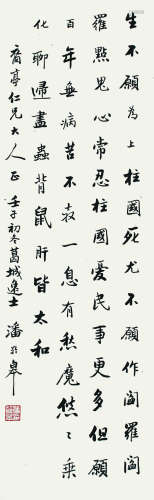 生不願為上柱國死尤不願作閻羅閻
羅點鬼心常忍柱國憂民事更多但願
百年無病苦不教一息有愁魔悠〻乘
化聊歸盡蟲背鼠肝皆太和
亭仁兄大人正 壬子初冬葛城逸士 潘齡皋